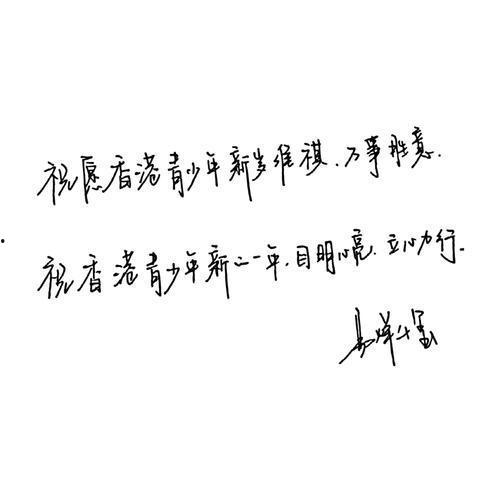 祝愿香港青少年新岁维祺、万事胜意.
祝香港青少年新的一年.目明心亮.立心力行.
易烊千玺